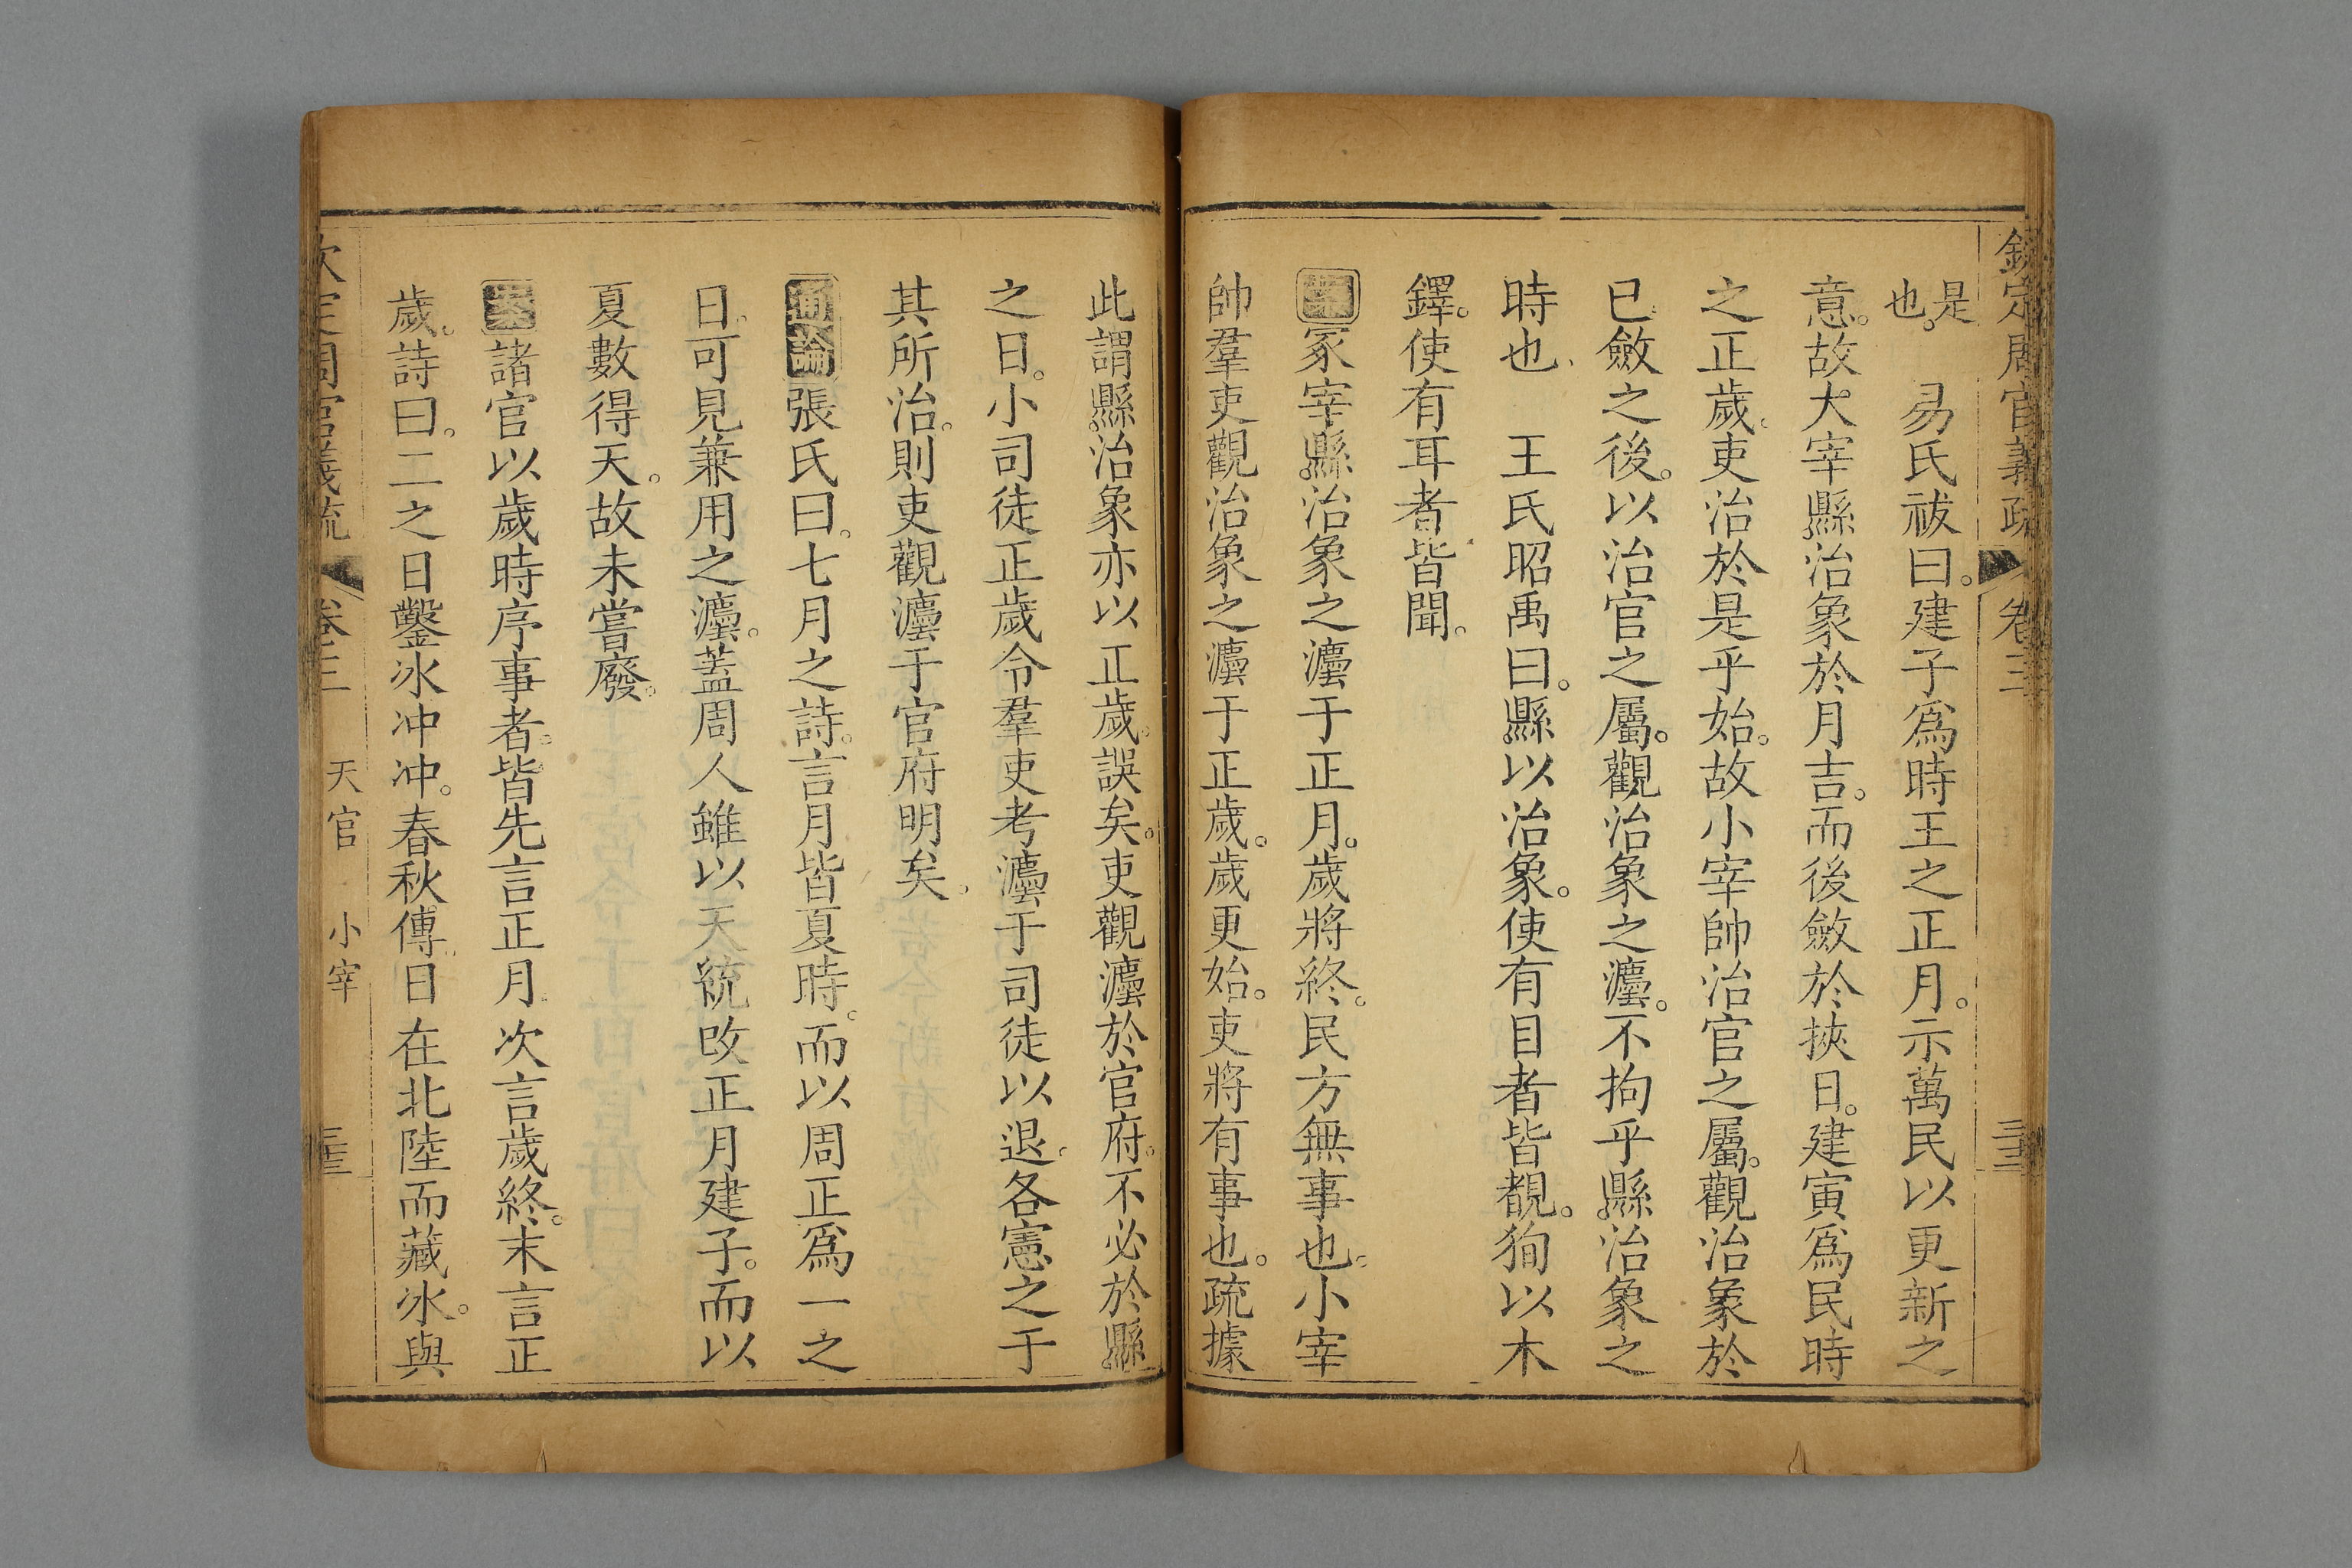 欽定周官義疏 卷三
是也。 易氏祓曰。建子爲時王之正月。示萬民以更新之
意。故大宰縣治象於月吉。而後斂於挾日。建寅爲民時
之正歲。吏治於是乎始。故小宰帥治官之屬。觀治象於
已斂之後。以治官之屬。觀治象之灋。不拘乎縣治象之
時也 王氏昭禹曰。縣以治象。使有目者皆覩。狥以木
鐸。使有耳者皆聞。
案冢宰縣治象之灋于正月。歲將終。民方無事也。小宰
帥羣吏觀治象之灋于正歲。歲更始。吏將有事也。疏據
此謂縣治象亦以正歲。誤矣。吏觀灋於官府。不必於縣
之日。小司徒正歲令羣吏考灋于司徒以退。各憲之于
其所治。則吏觀灋于官府明矣。
通論張氏曰。七月之詩。言月皆夏時。而以周正爲一之
日。可見兼用之灋。蓋周人雖以天統改正月建子。而以
夏數得天。故未嘗廢。
案諸官以歲時序事者。皆先言正月 次言歲終。末言正
歲。詩曰。二之日鑿冰冲冲。春秋傳曰在北陸而藏冰。與
欽定周官義疏 卷三 天官 小宰